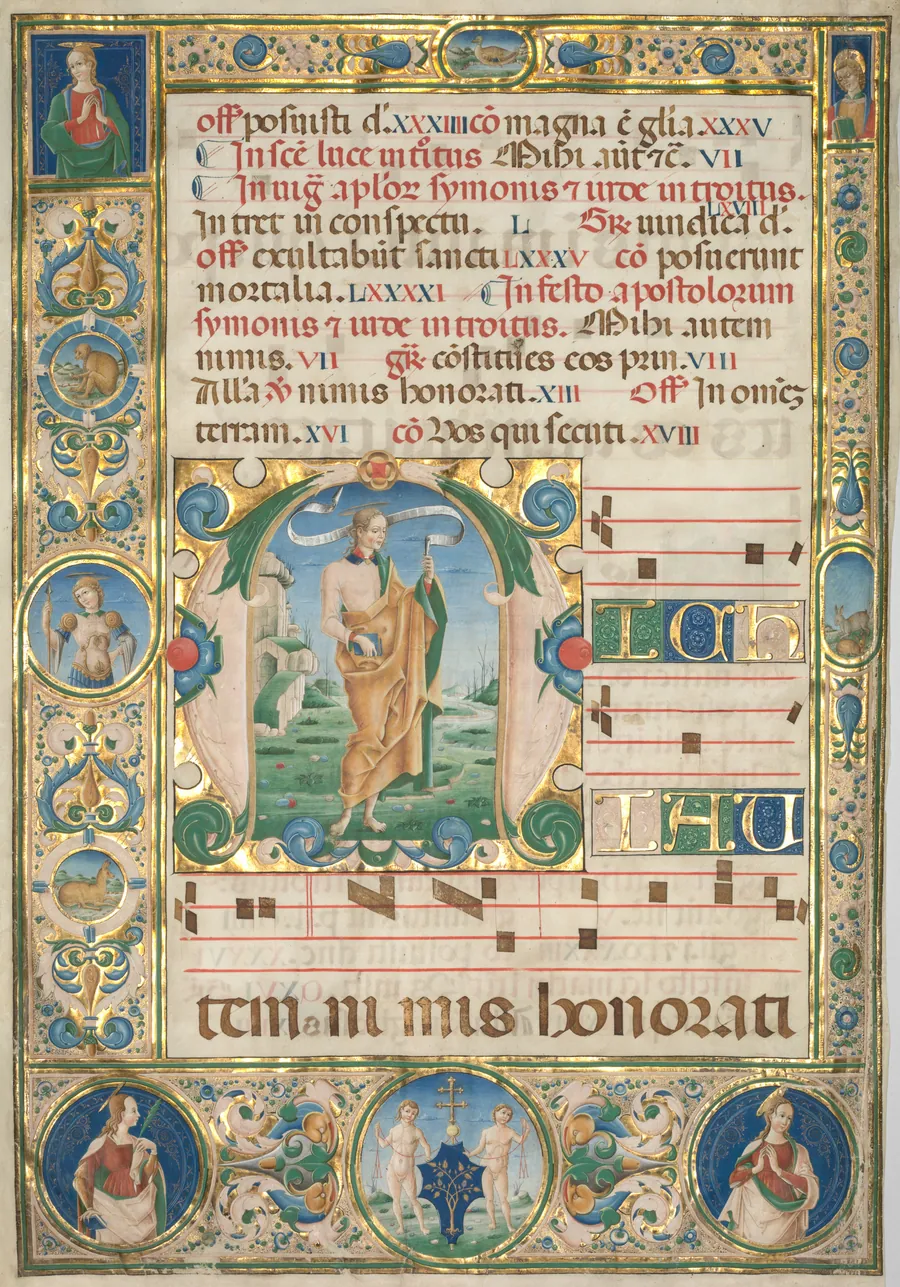 off posuisti d.XXXIIII cō magna ē gl̄ia.XXXV
In scē luce introitus Mihi aūt ⁊c̄. VII
In uig̅ apl̄oꝝ symonis ⁊ iude introitus.
Intret in conspectu. L Gr. uindica d. LXVIII
off exultabūt sancti LXXXV cō posuerunt
mortalia. LXXXXI In festo apostolorum
symonis ⁊ iude introitus. Mihi autem
nimis. VII gr̄. cōstitues eos prin. VIII
Alla ℣ nimis honorati. XIII Off In omēꝫ
terram. XVI cō Vos qui secuti. XVIII
M ICH
I AU
tem ni mis honorati